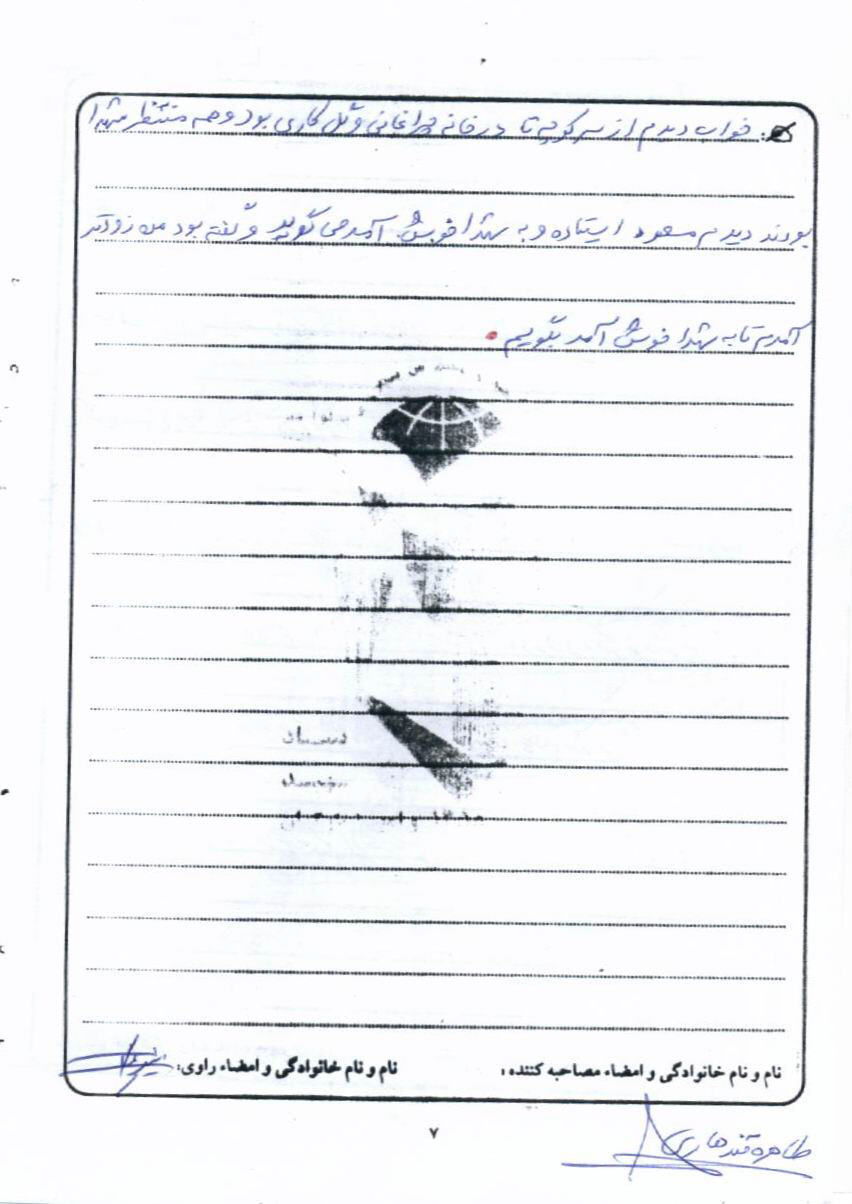 ج: خواب دیدم از سر کوچه تا در خانه چراغانی و گل کاری بود و همه منتظر شهدا
بودند دیدم مسعود ایستاده و به شهدا خوش آمد می گوید و گفته بود من زودتر
آمدم تا به شهدا خوش آمد بگویم.
نام و نام خانوادگی و امضاء مصاحبه کننده : نام و نام خانوادگی و امضاء راوی:
۷
طاهره قندهاری